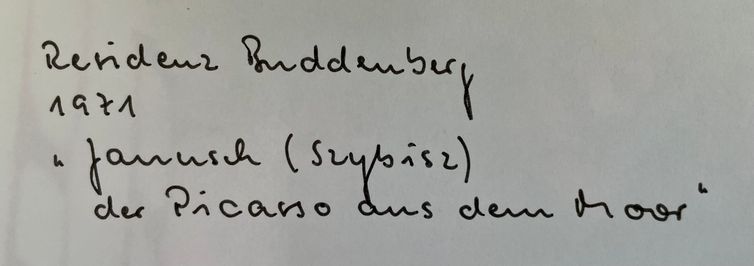 Residenz Buddenberg
1971
"Janusch (Szybisz)
der Picasso aus dem Moor"